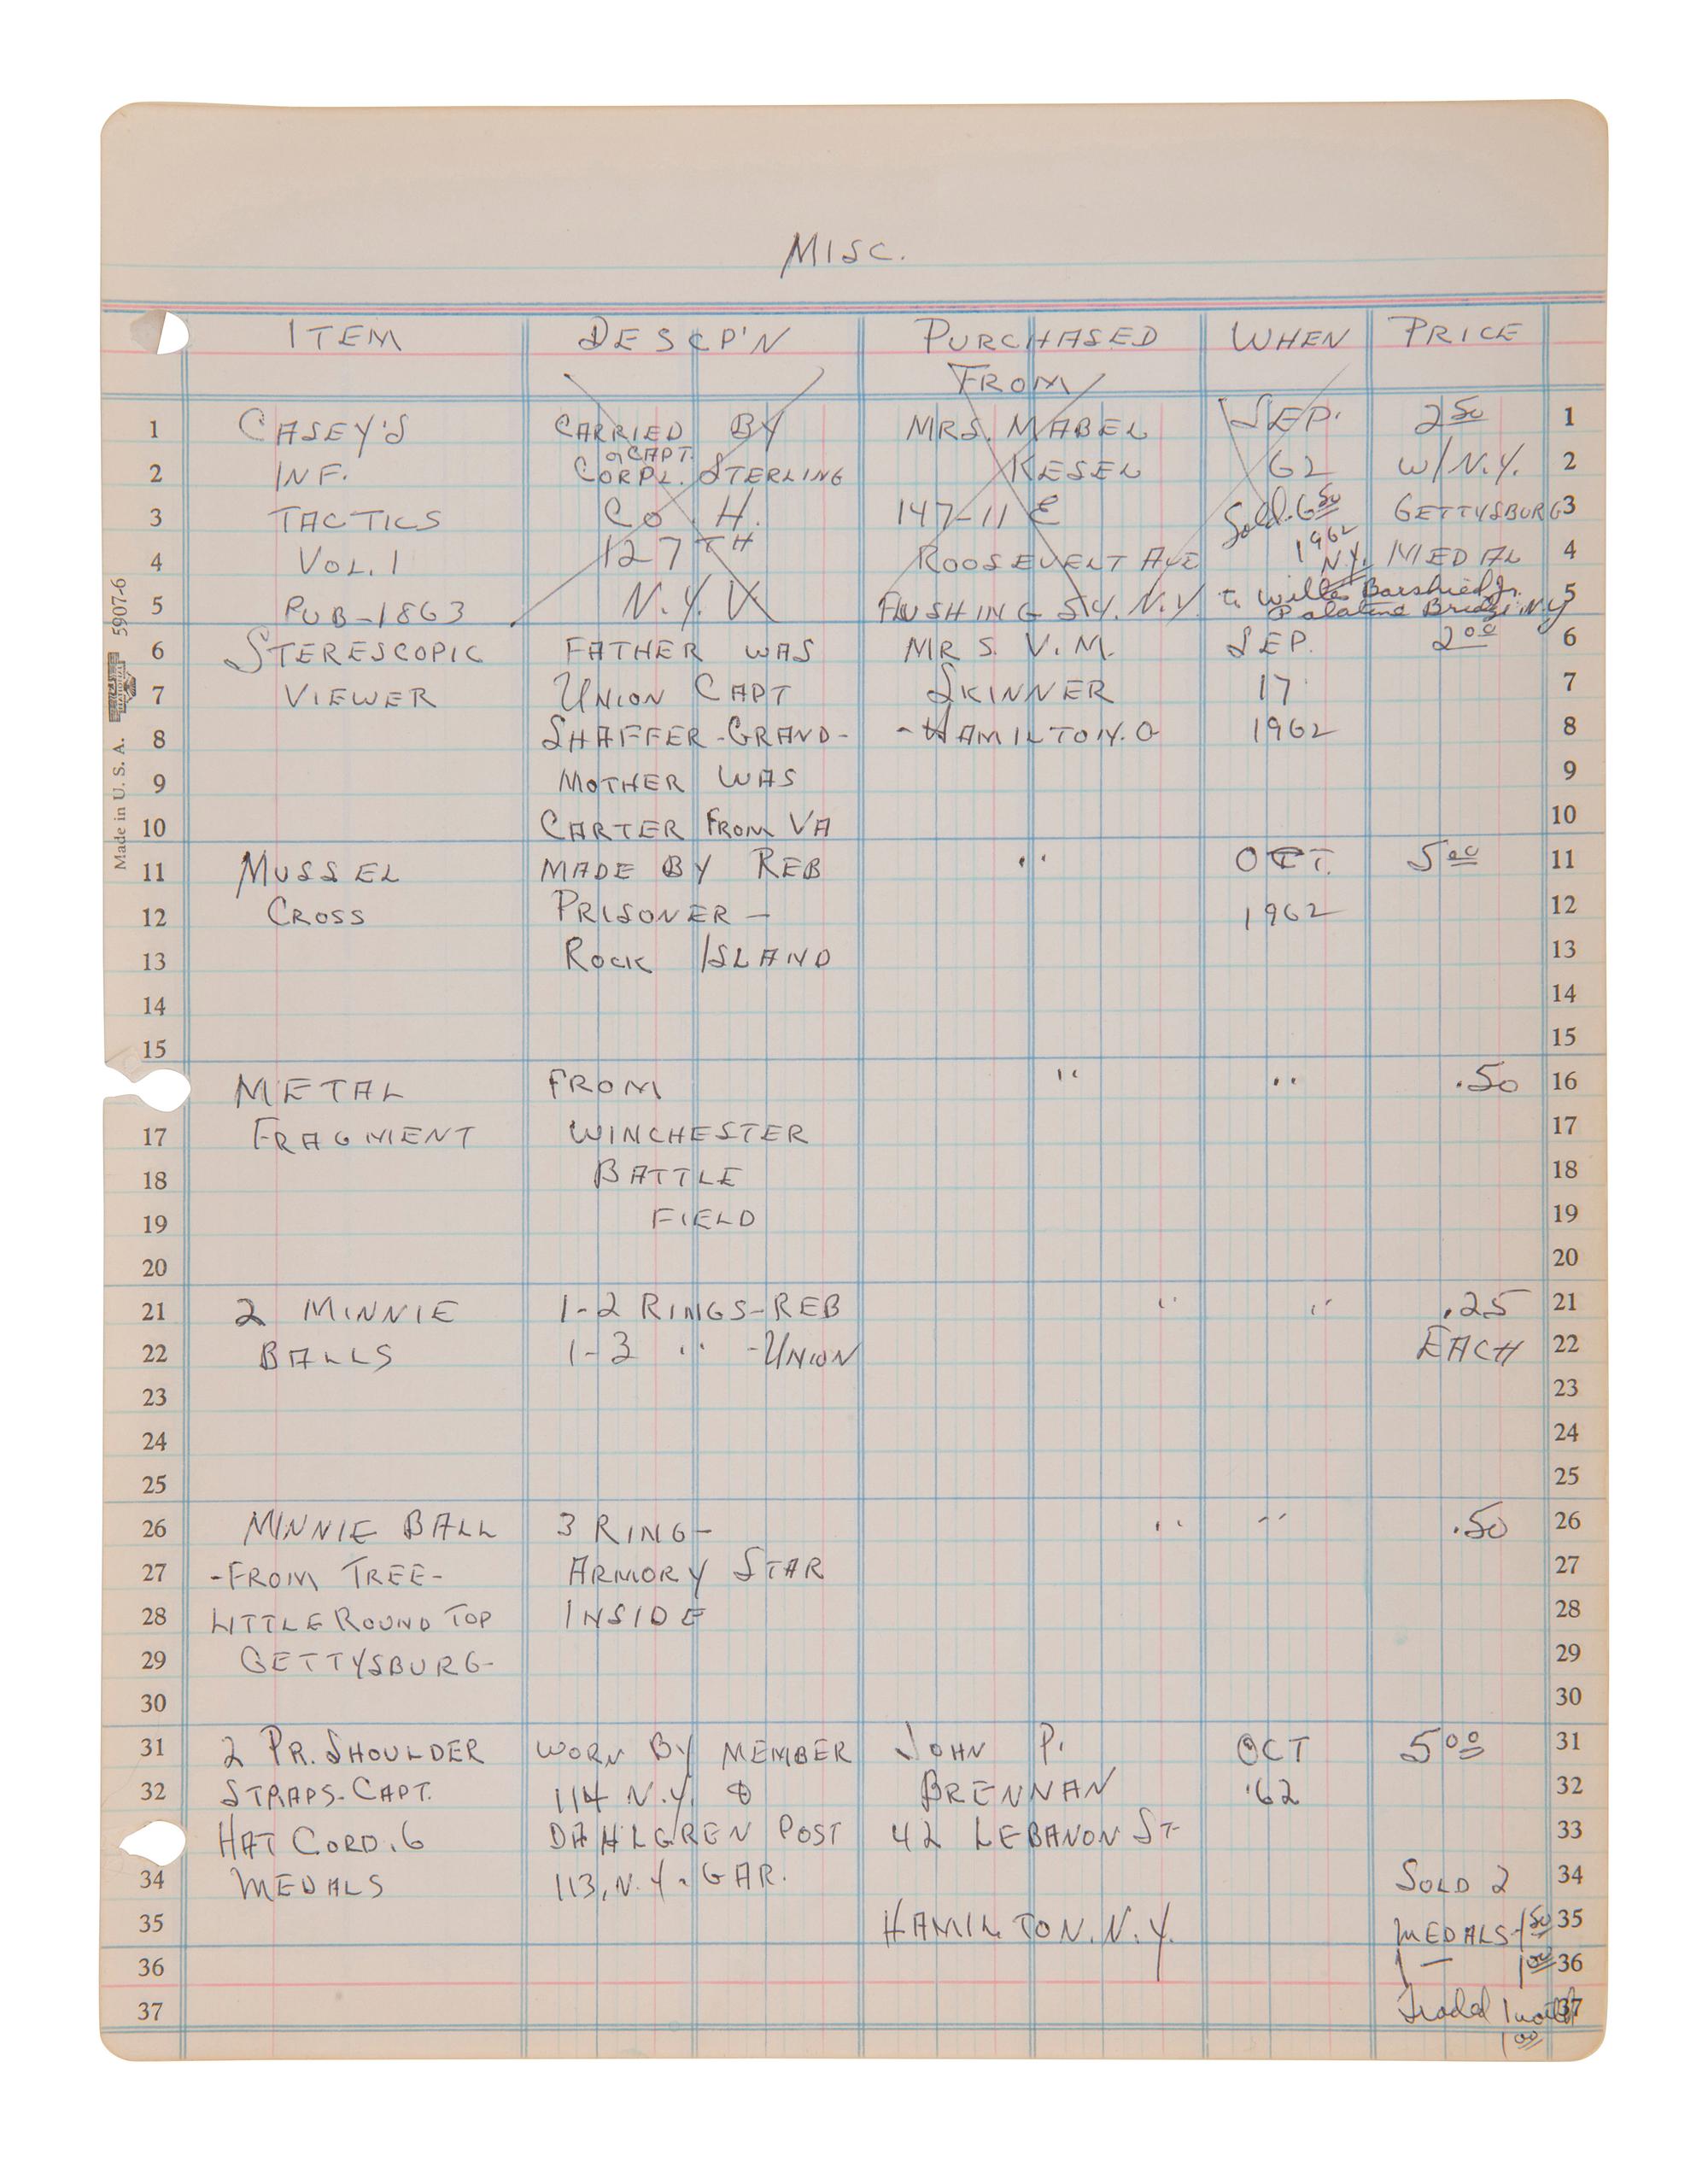 MISC.
ITEM DESCP'N PURCHASED WHEN PRICE
FROM
1 CASEY'S CARRIED BY MRS. MABEL SEP. 2 50 1
& CAPT.
2 INF. CORPL. STERLING KESEL 62 W/N.Y. 2
3 TACTICS CO H. 147-11 E Sold. 6 50 GETTYSBURG 3
4 VOL. 1 127TH ROOSEVELT AVE 1962 N.Y. MEDAL 4
5 PUB-1863 N.Y.V. FLUSHING 54. N.Y. to Willis Barshied Jr. 5
Palatine Bridge N.Y
6 STERESCOPIC FATHER WAS MRS. V.M. SEP. 2 00 6
7 VIEWER UNION CAPT SKINNER 17 7
8 SHAFFER-GRAND- -HAMILTON.O 1962 8
9 MOTHER WAS 9
10 CARTER FROM VA 10
11 MUSSEL MADE BY REB " OCT. 5 00 11
12 CROSS PRISONER- 1962 12
13 ROCK ISLAND 13
14 14
15 15
METAL FROM " " .50 16
17 FRAGMENT WINCHESTER 17
18 BATTLE 18
19 FIELD 19
20 20
21 2 MINNIE 1-2 RINGS-REB " " .25 21
22 BALLS 1-3 " -UNION EACH 22
23 23
24 24
25 25
26 MINNIE BALL 3 RING- " " .50 26
27 -FROM TREE- ARMORY STAR 27
28 LITTLE ROUND TOP INSIDE 28
29 GETTYSBURG- 29
30 30
31 2 PR. SHOULDER WORN BY MEMBER JOHN P. OCT 5 00 31
32 STRAPS-CAPT. 114 N.Y. & BRENNAN '62 32
HAT CORD. 6 DAHLGREN POST 42 LEBANON ST 33
34 MEDALS 113, N.Y. GAR. SOLD 2 34
35 HAMILTON. N.Y. MEDALS-1 50 35
36 1 - 1 00 36
37 Traded 1 37
1 00
Made in U. S. A. NATIONAL 5907-6